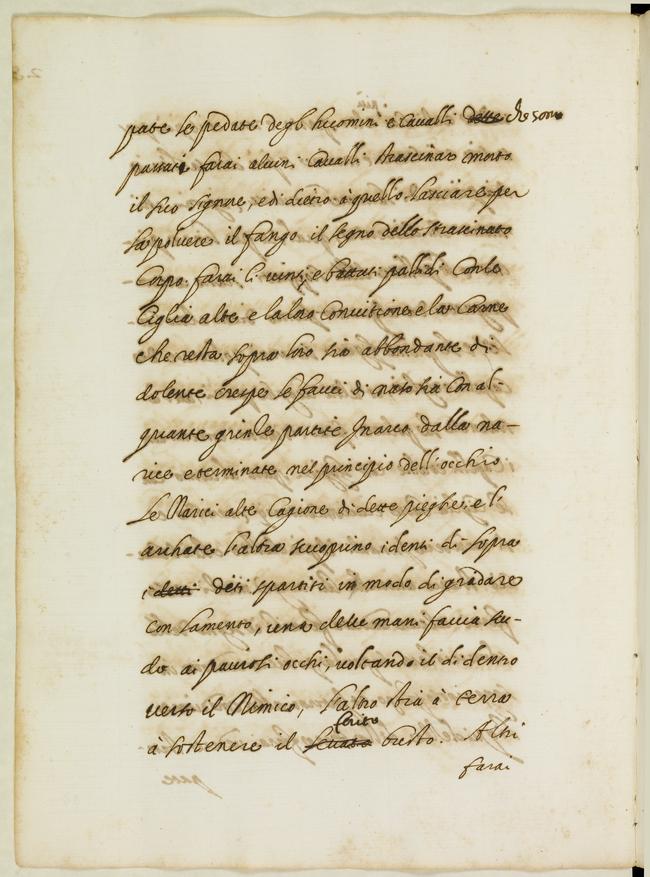 pate le pedate degl' huomini e Cavalli dette che sono
passati farai alcuni Cavalli strascinar morto
il suo signore, e di dietro à quello lasciare per
la polvere il fango il segno dello strascinato
Corpo. farai li vinti, e battuti pallidi Con le
Ciglia alte e la loro Coniutione e la Carne
che resta sopra loro sia abbondante di
dolente crespe le fauci di naso sia con al-
quante grinze partite In arco dalla na-
rice e terminate nel principio dell'occhio
Le Narici alte Cagione di dette pieghe, e l'
archate l'abra scuoprino i denti di sopra
i detti dēti spartiti in modo di gridare
con lamento, una delle mani faccia scu-
do ai paurosi occhi, voltando il di dentro
verso il Nimico, l'altro stia à terra
à sostenere il levato ferito busto. Altri
farai